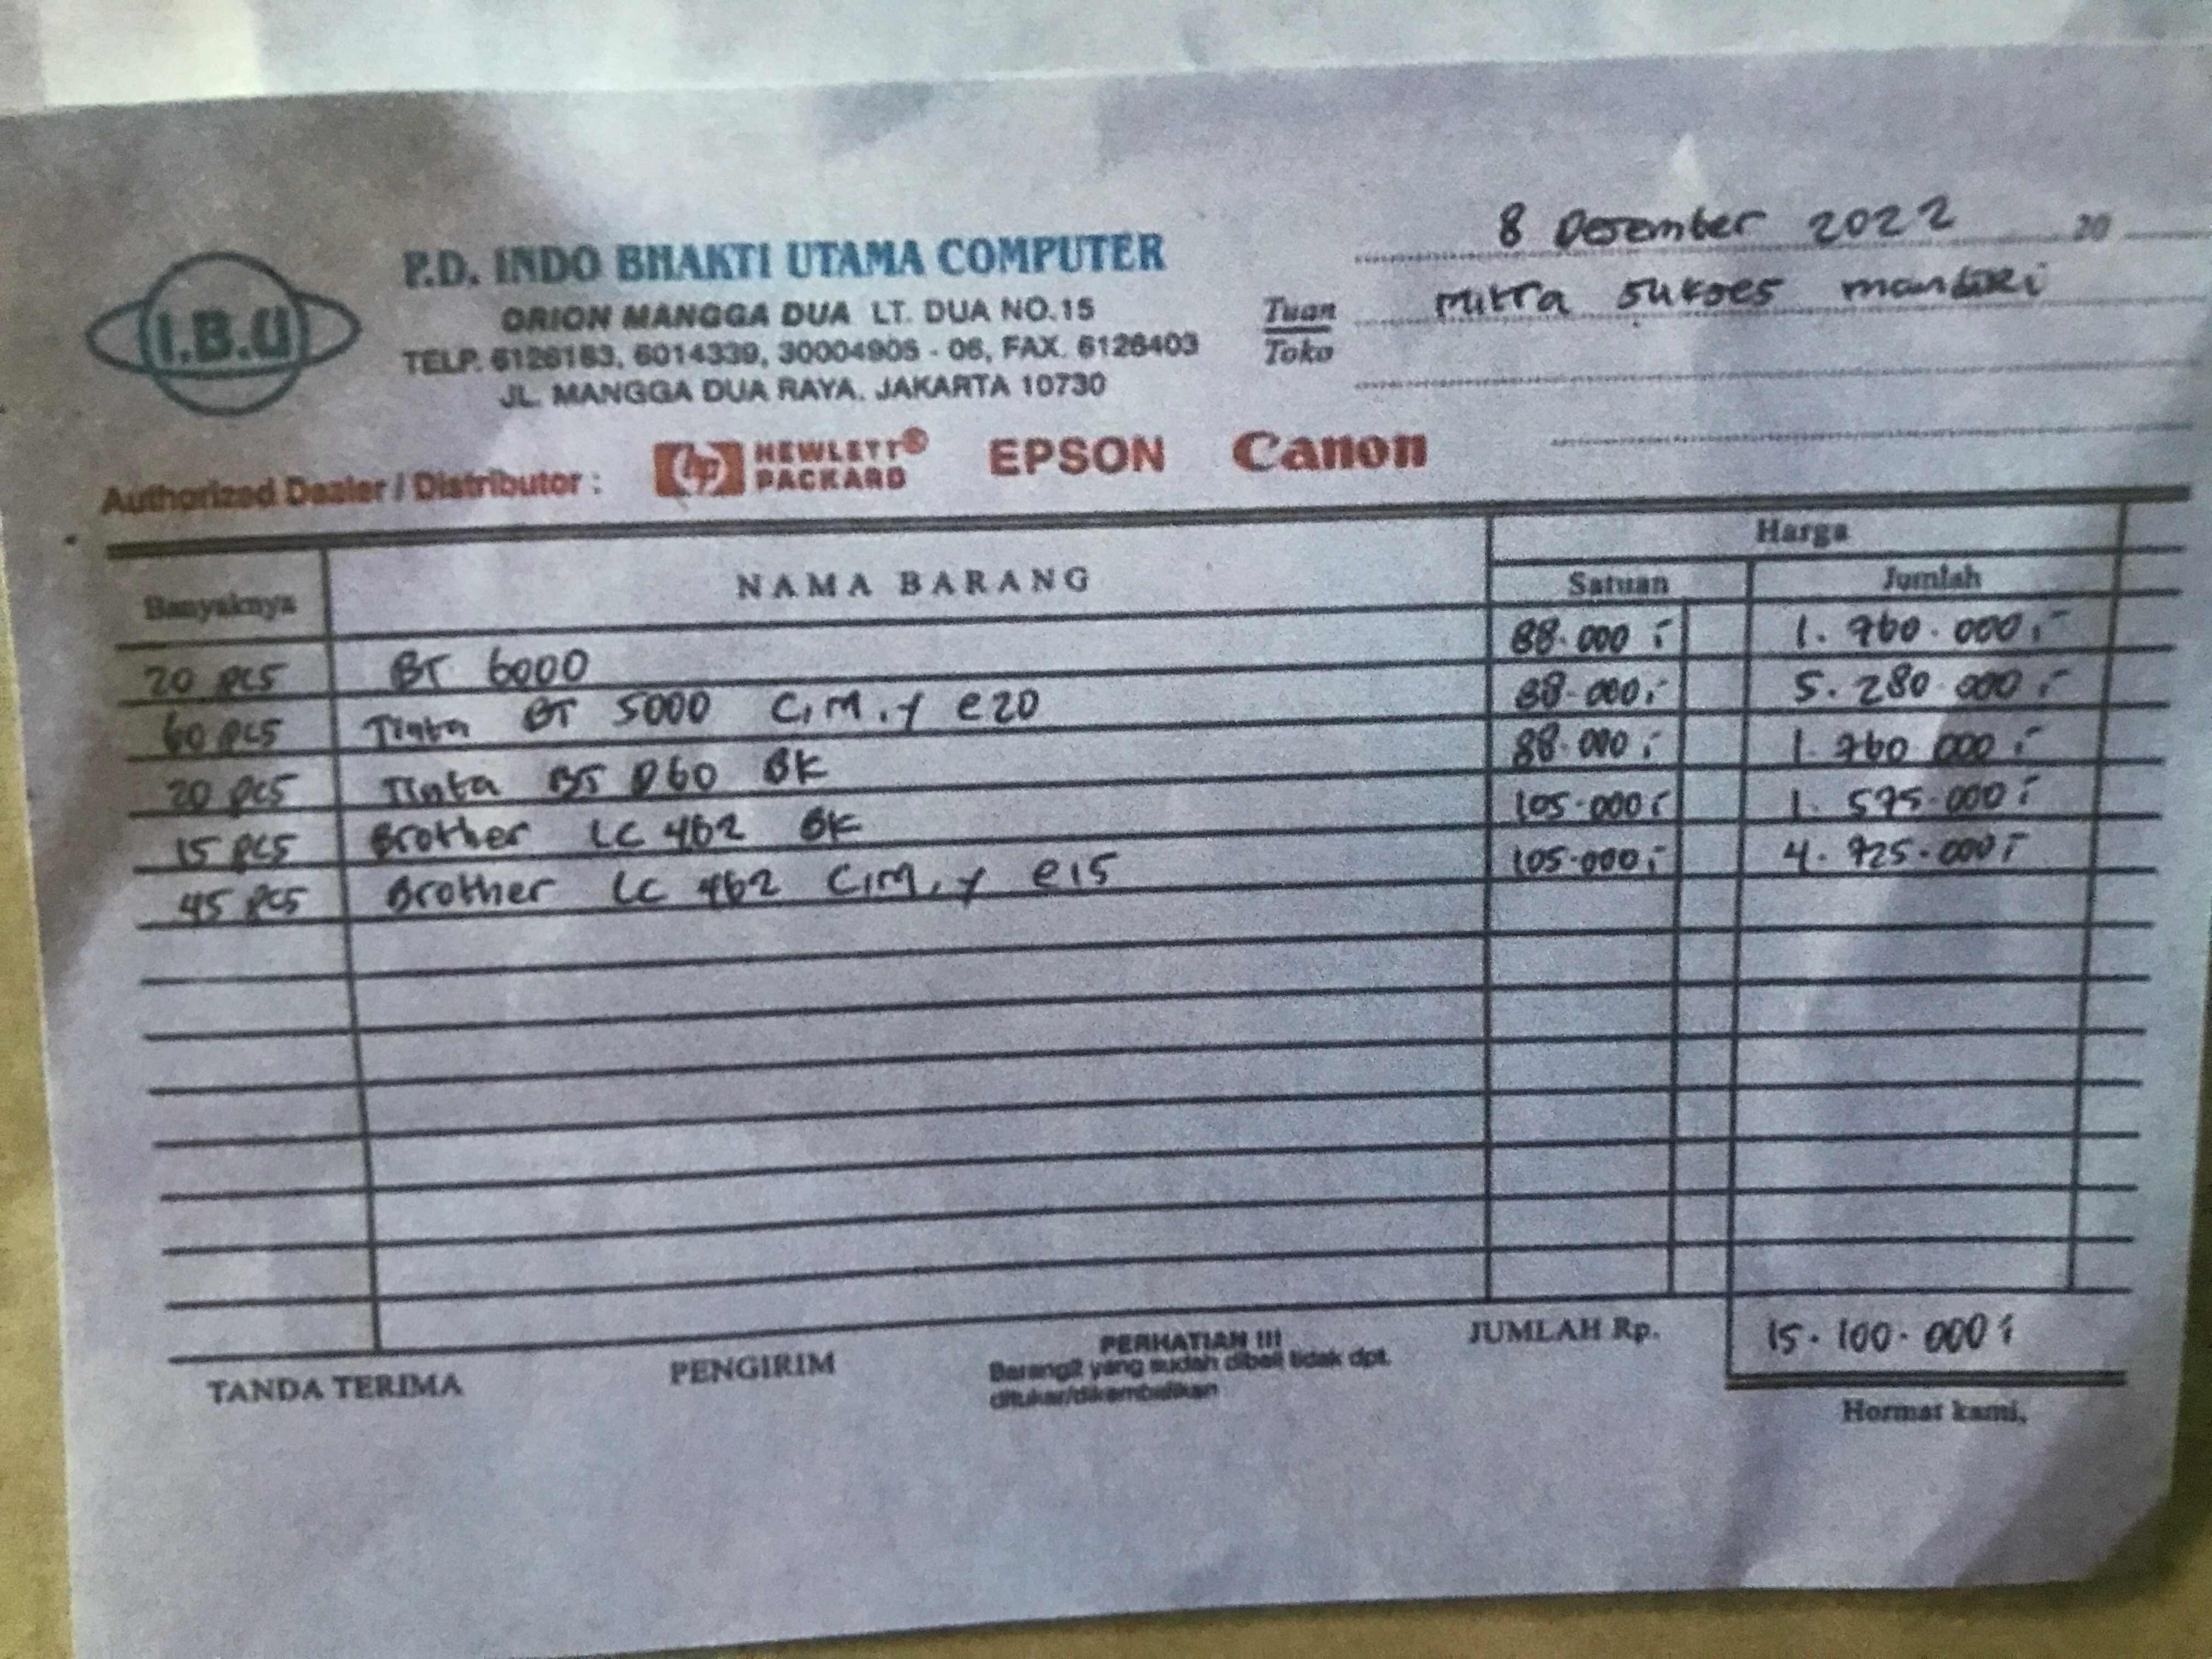 8 Desember 2022 20
P.D. INDO BHAKTI UTAMA COMPUTER
I.B.U
ORION MANGGA DUA LT. DUA NO.15
TELP. 6126183, 6014339, 30004905 - 06, FAX. 6126403
JL. MANGGA DUA RAYA. JAKARTA 10730
Tuan
Toko
mitra sukses mandiri
Authorized Dealer / Distributor : hp HEWLETT® PACKARD EPSON Canon
Banyaknya NAMA BARANG Harga
Satuan Jumlah
20 pcs BT 6000 88.000,- 1.760.000,-
60 pcs Tinta BT 5000 C,M,Y @20 88.000,- 5.280.000,-
20 pcs Tinta BT D60 BK 88.000,- 1.760.000,-
15 pcs Brother LC 462 BK 105.000,- 1.575.000,-
45 pcs Brother LC 462 C,M,Y @15 105.000,- 4.725.000,-
JUMLAH Rp. 15.100.000,-
TANDA TERIMA PENGIRIM PERHATIAN !!!
Barang2 yang sudah dibeli tidak dpt.
ditukar/dikembalikan
Hormat kami,